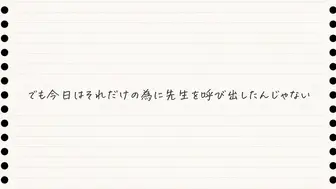 でも今日はそれだけの為に先生を呼び出したんじゃない